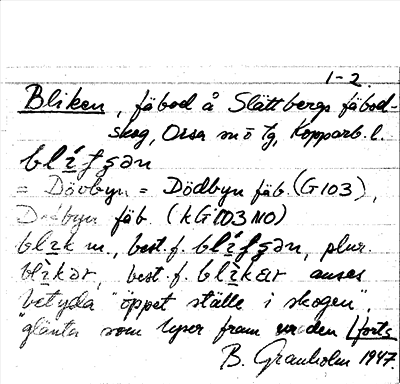 1-2.
Bliken, fäbod å Slättbergs fäbod-
skog, Orsa sn o tg, Kopparb. l.
blíʃgən
= Dödbyn = Dödbyn fäb. (G103),
Dödbyn fäb. (kG103 NO)
blìk m., best. f. blíʃgən, plur.
blìkər, best. f. blìkər anses
betyda "öppet ställe i skogen",
"glänta som lyser fram den (forts
B. Granholm 1947.